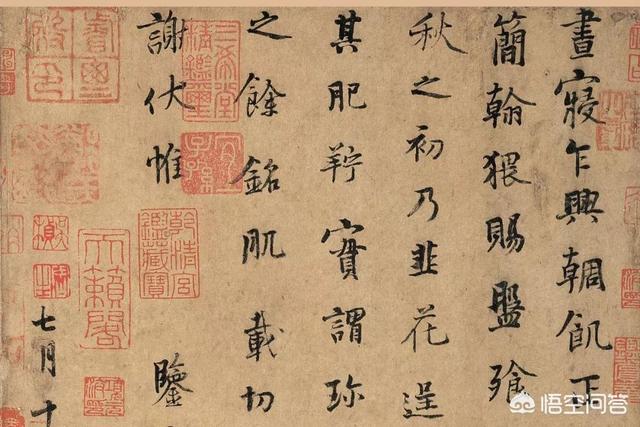 晝寢乍興輖飢正
簡翰猥賜盤飧
秋之初乃韭花逞
其肥羜實謂珍
之餘銘肌載切
謝伏惟 鑒
七月十
三希堂精鑑璽
宜子孫
乾清宮鑑藏寶
天籟閣
悟空问答